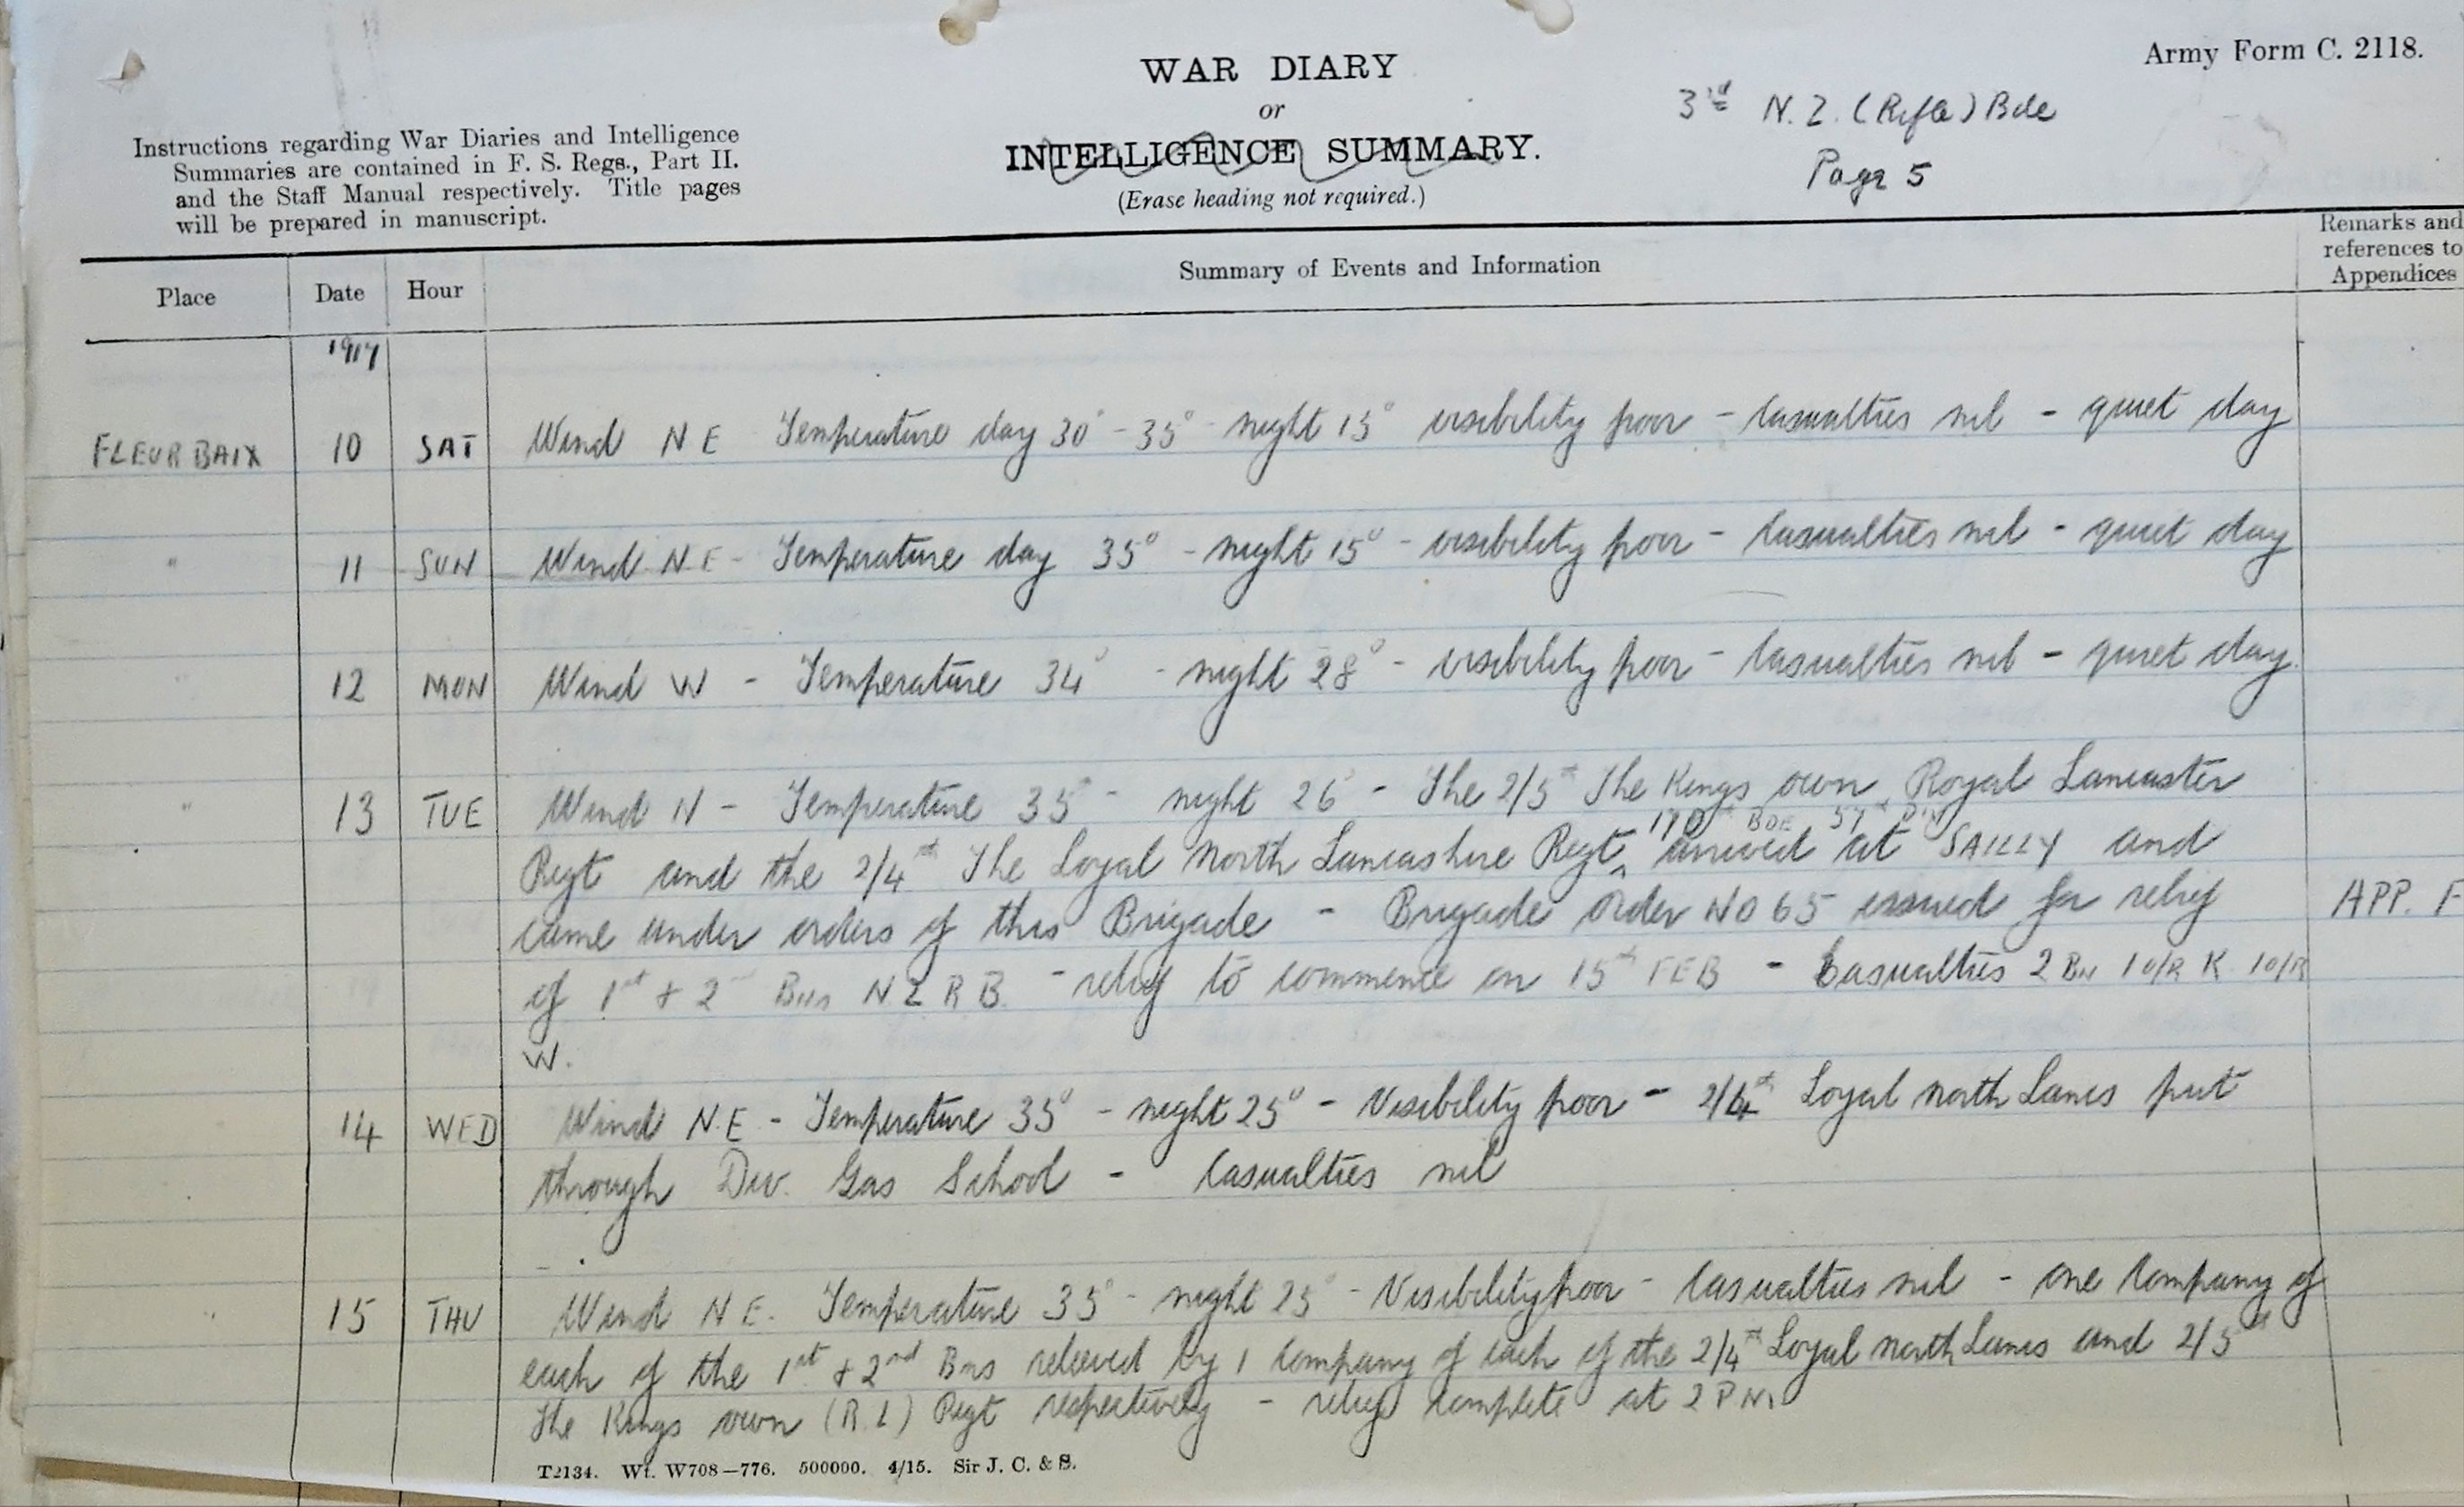 Army Form C. 2118.
WAR DIARY
or
INTELLIGENCE SUMMARY.
(Erase heading not required.)
3rd N.Z. (Rifle) Bde
Page 5
Instructions regarding War Diaries and Intelligence
Summaries are contained in F. S. Regs., Part II.
and the Staff Manual respectively. Title pages
will be prepared in manuscript.
Place Date Hour Summary of Events and Information Remarks and references to Appendices
1917
FLEURBAIX 10 SAT Wind N E Temperature day 30° - 35° - night 15° visibility poor - Casualties nil - quiet day
" 11 SUN Wind N.E - Temperature day 35° - night 15° - visibility poor - Casualties nil - quiet day
" 12 MON Wind W - Temperature 34° - night 28° - visibility poor - Casualties nil - quiet day.
" 13 TUE Wind N - Temperature 35° - night 26° - The 2/5th The Kings own Royal Lancaster
170th BDE 57th DIV
Regt and the 2/4th The Loyal North Lancashire Regt, arrived at SAILLY and
came under orders of this Brigade - Brigade Order NO 65 issued for relief APP. F
of 1st + 2nd Bns N Z R B. - relief to commence on 15th FEB - Casualties 2 Bn 1 O/R K. 1 O/R
W.
14 WED Wind N.E - Temperature 35° - night 25° - Visibility poor - 2/4th Loyal North Lancs put
through Div. Gas School - Casualties nil
" 15 THU Wind N E. Temperature 35° - night 25° - Visibility poor - Casualties nil - one Company of
each of the 1st + 2nd Bns relieved by 1 Company of each of the 2/4th Loyal North Lancs and 2/5th
The Kings own (R.L) Regt respectively - relief complete at 2 PM
T2134. Wt. W708—776. 500000. 4/15. Sir J. C. & S.